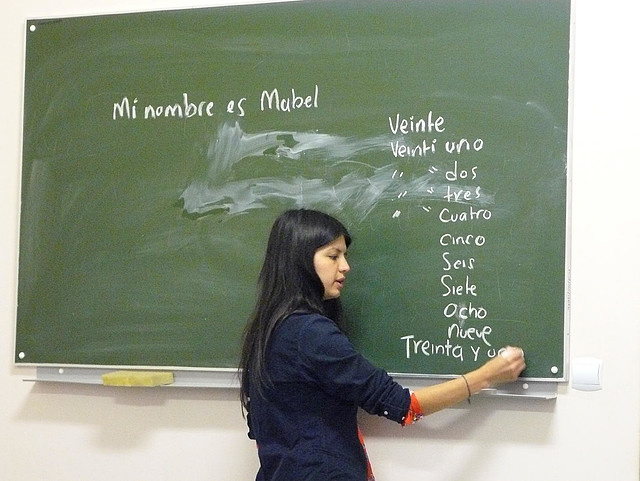 Mi nombre es Mabel
Veinte
Veinti uno
" " dos
" " tres
" " cuatro
cinco
Seis
Siete
Ocho
nueve
Treinta y